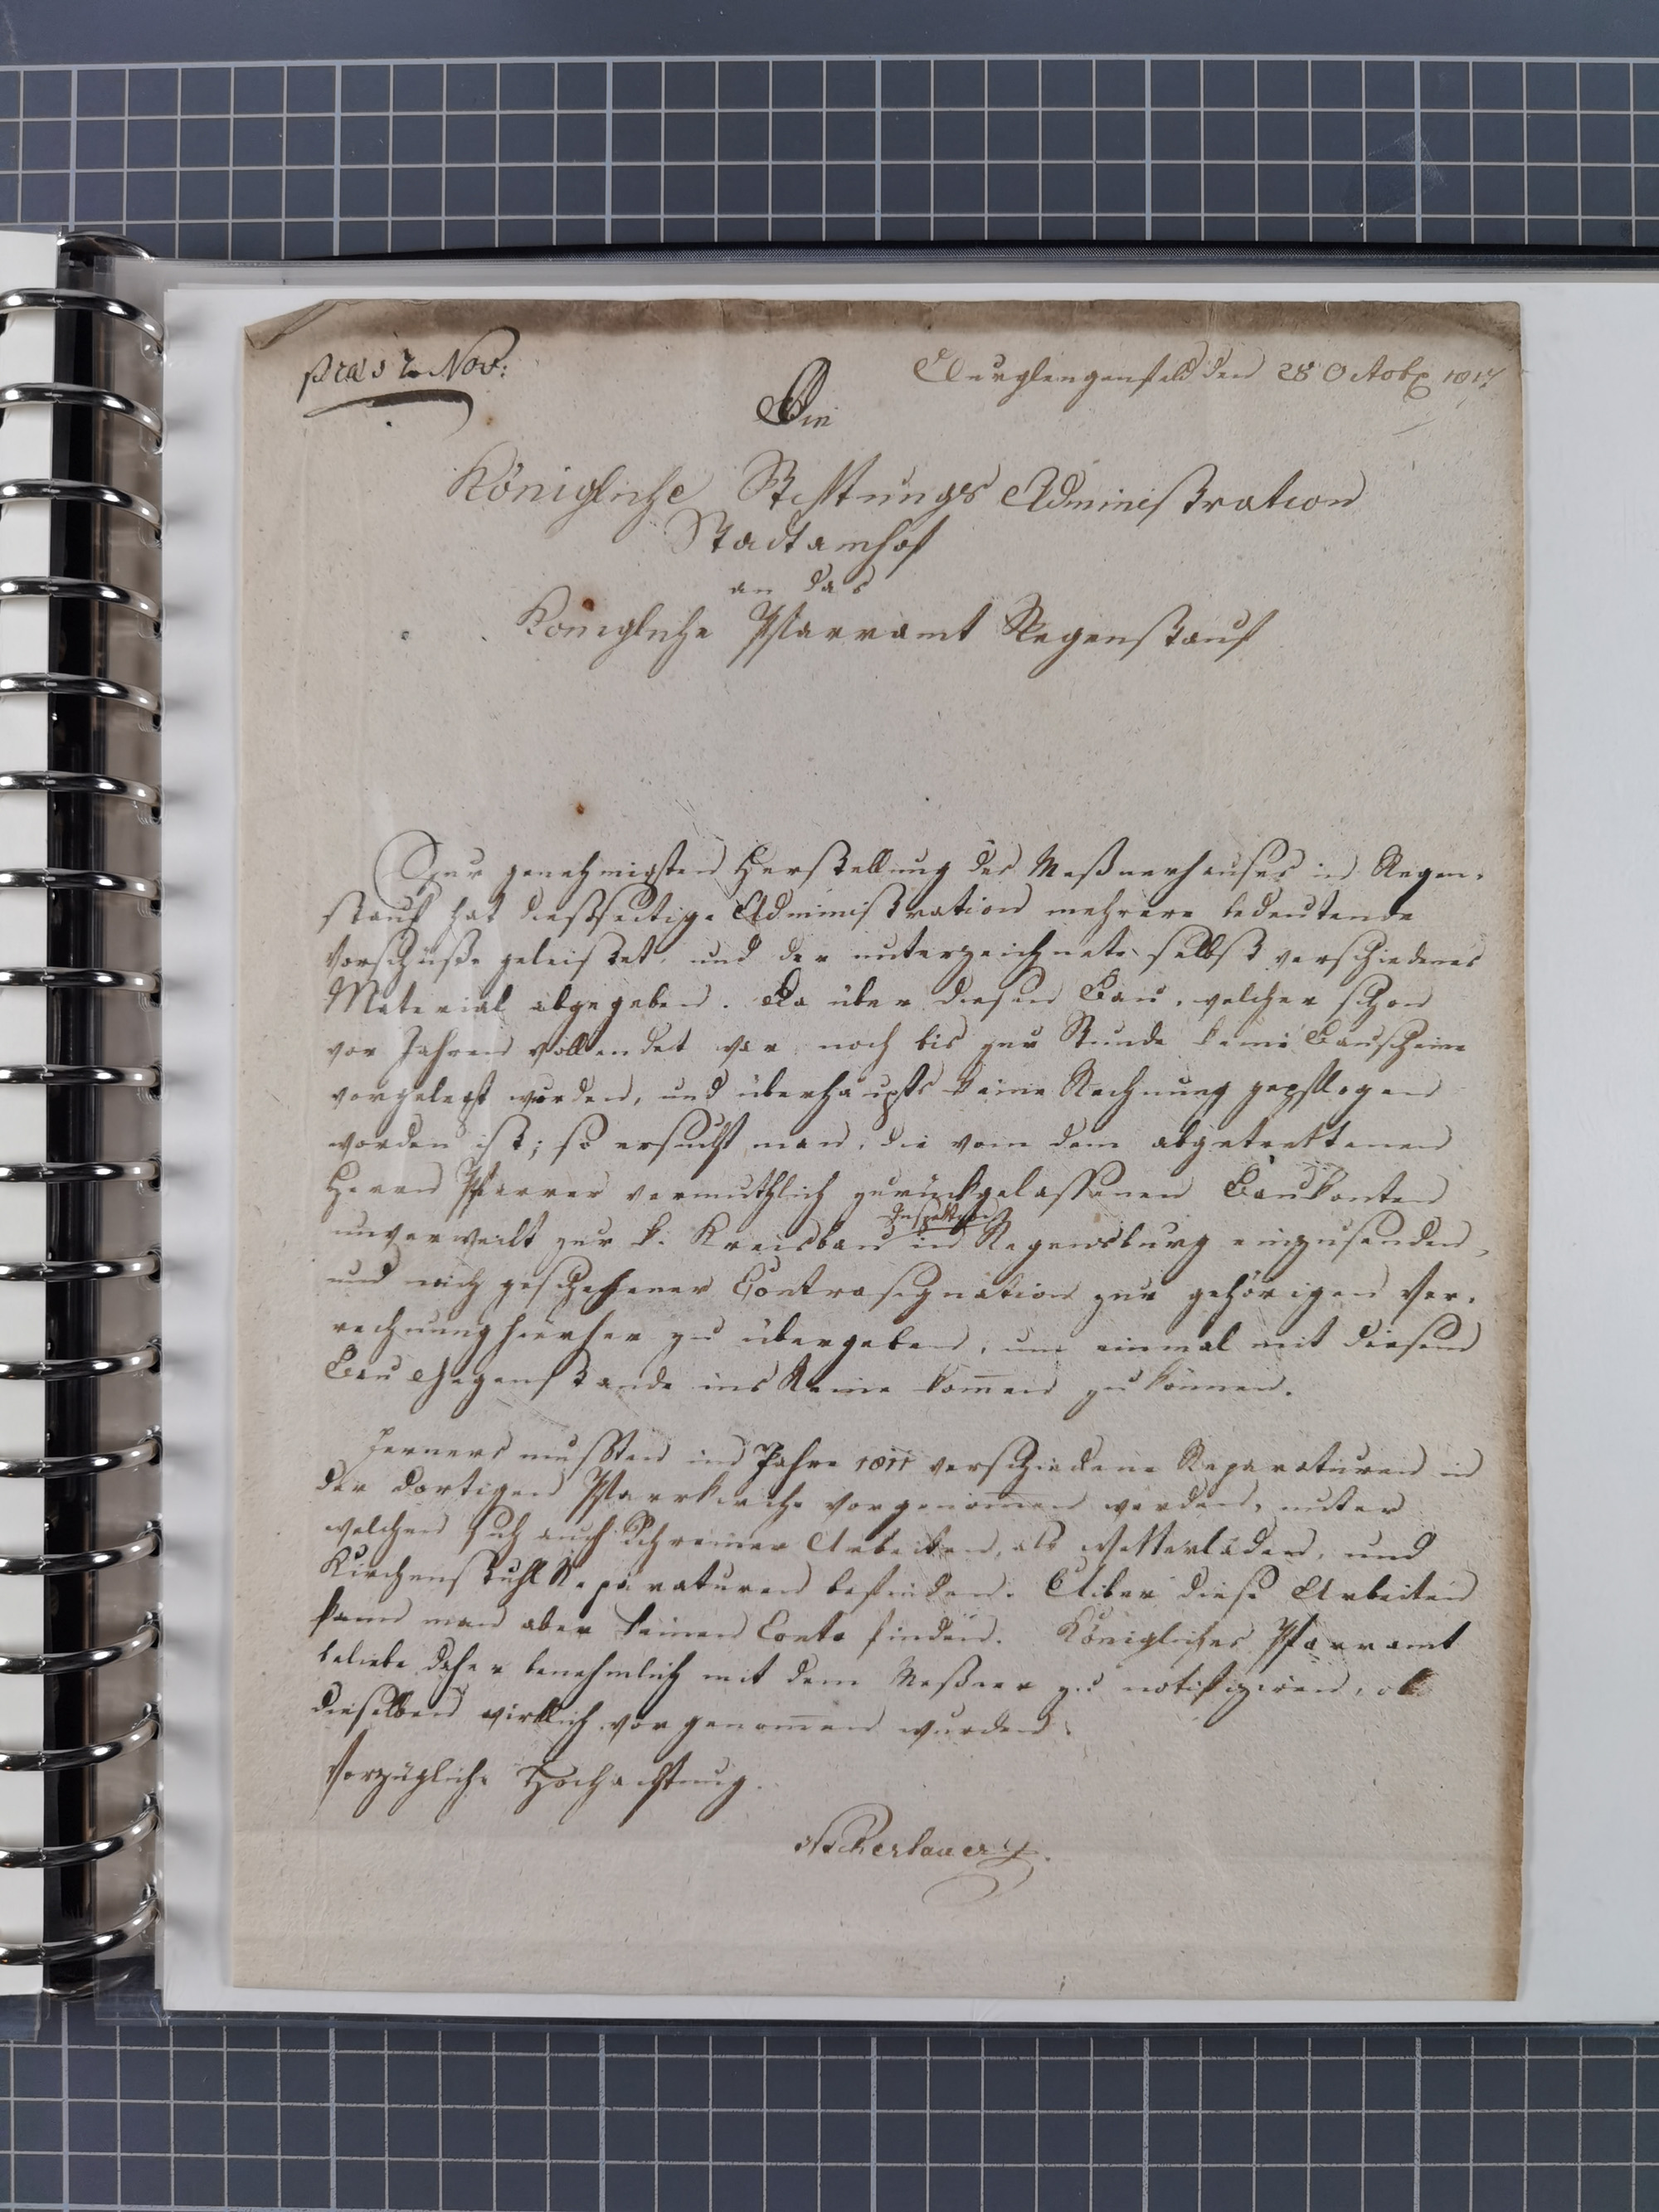 præs 2 Nov:
Burglengenfeld den 28 Octobr 1817
Die
Königliche Stiftungs Administration
Stadtamhof
an das
Königliche Pfarramt Regenstauf
Zur genehmigten Herstellung des Meßnerhauses in Regen-
stauf hat diesseitige Administration mehrere bedeutende
Vorschüße geleistet, und der unterzeichnete selbst verschiedenes
Material abgegeben. Da über diesen Bau, welcher schon
vor Jahren vollendet war, noch bis zur Stunde keine Bauscheine
vorgelegt wurden, und überhaupts keine Rechnung gepflogen
worden ist; so ersucht man, die von dem abgetrettenen
Herrn Pfarrer vermuthlich zurückgelassenen Baukonten
unverweilt zur k. Kreisbau Inspektion in Regensburg einzusenden,
und nach geschehener Contrasignation zur gehörigen Ver-
rechnung hierher zu übergeben, um einmal mit diesem
Bau Gegenstande ins Reine kommen zu können.
Ferners mußten im Jahre 1811 verschiedene Reparaturen in
der dortigen Pfarrkirche vorgenommen werden, unter
welchen sich auch Schreiner Arbeiten, als Wetterläden, und
Kirchenstuhl Reparaturen befinden. Uiber diese Arbeiten
kann man aber keinen Conto finden. Königliches Pfarramt
beliebe daher benehmlich mit dem Meßner zu notifiziren, ob
dieselben wirklich vorgenommen wurden.
Vorzügliche Hochachtung.